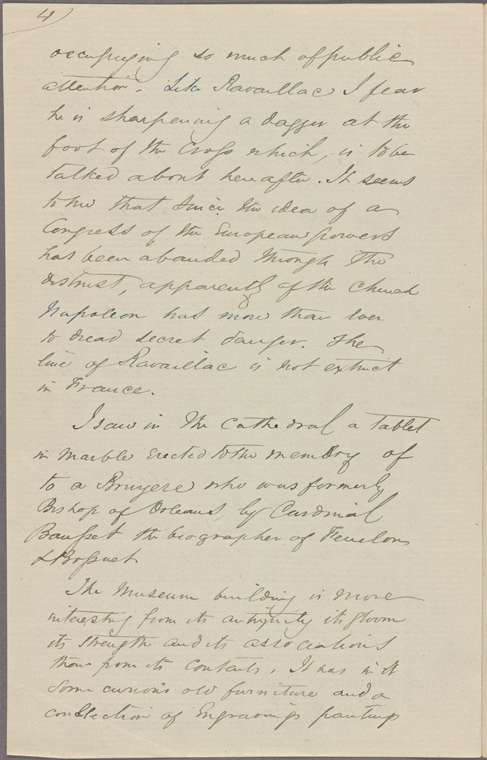 4
occupying so much of public
attention. Like Ravaillac I fear
he is sharpening a dagger at the
foot of the Cross which, is to be
talked about hereafter. It seems
to me that since the idea of a
Congress of the European powers
has been abanded through the
distrust, apparently of the Church
Napoleon has more than ever
to dread secret danger. The
line of Ravaillac is not extinct
in France.
I saw in the Cathedral a tablet
in marble erected to the memory of
to a Bruyere who was formerly
Bishop of Orleans by Cardinal
Bausset the biographer of Fenelon
& Bossuet
The Museum building is more
interesting from its antiquity its gloom
its strength and its associations
than from its contents. It has in it
some curious old furniture and a
conllection of Engravings paintings